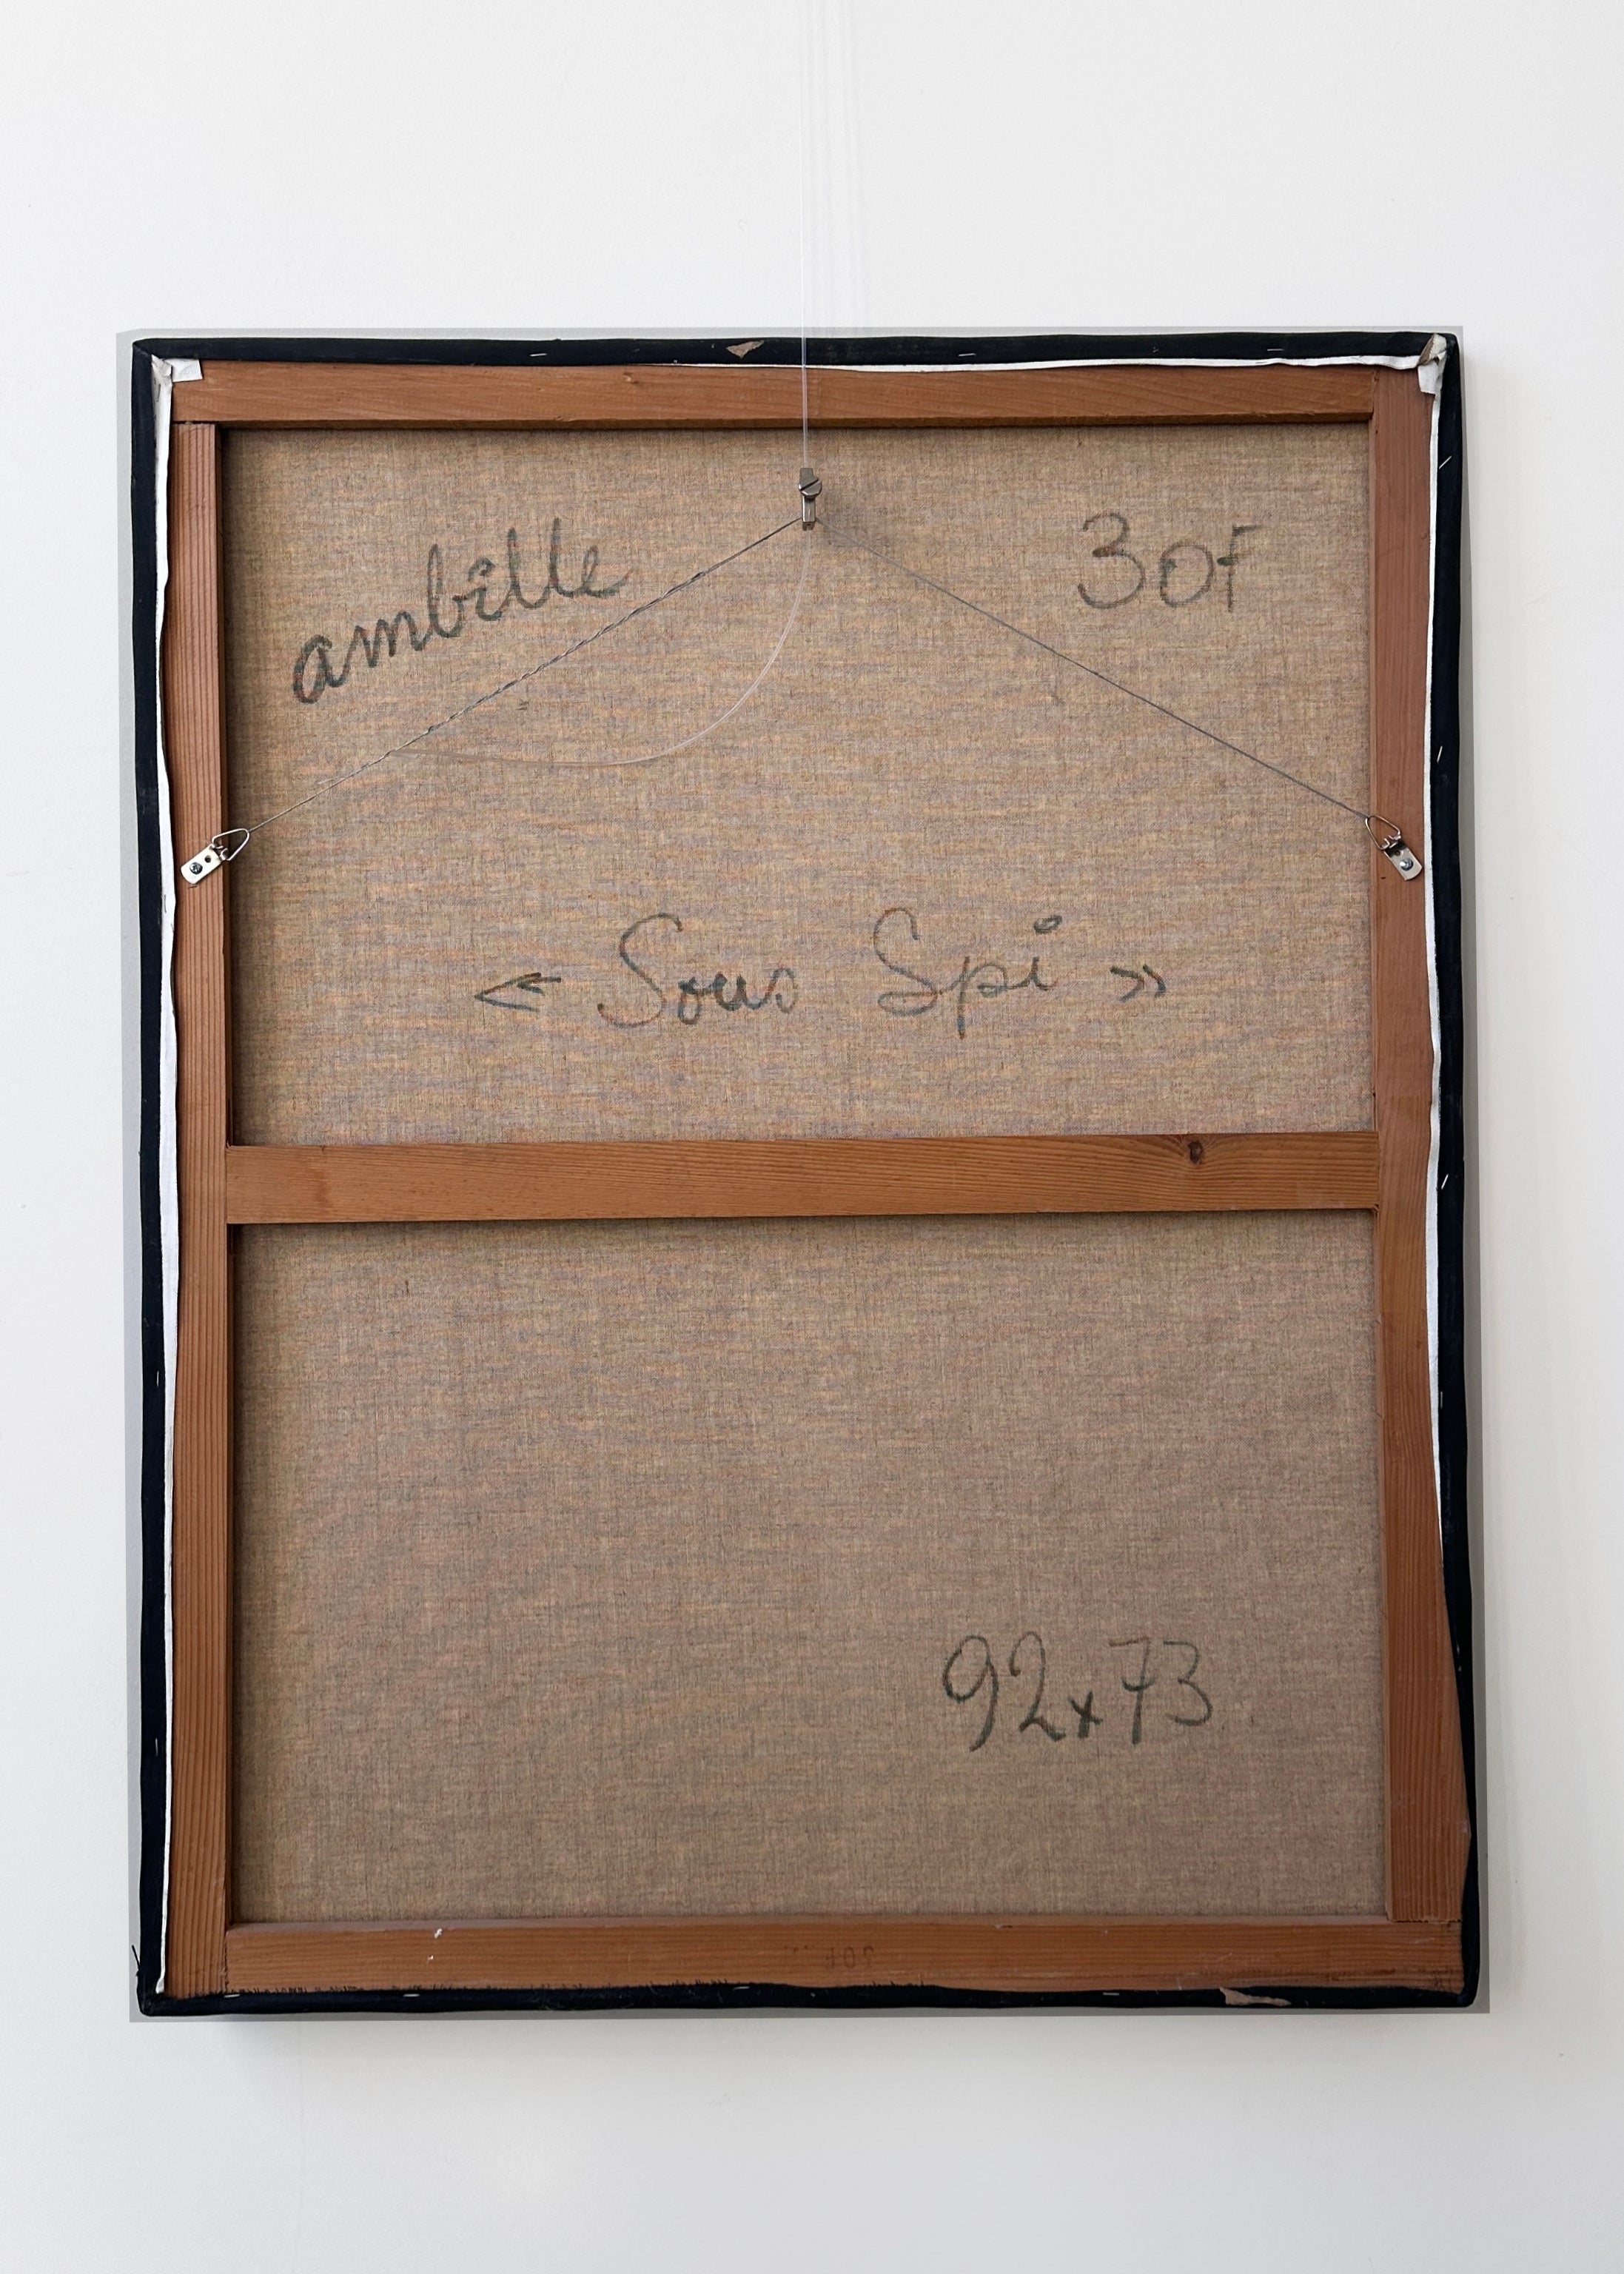 ambille
30F
« Sous Spi »
92x73